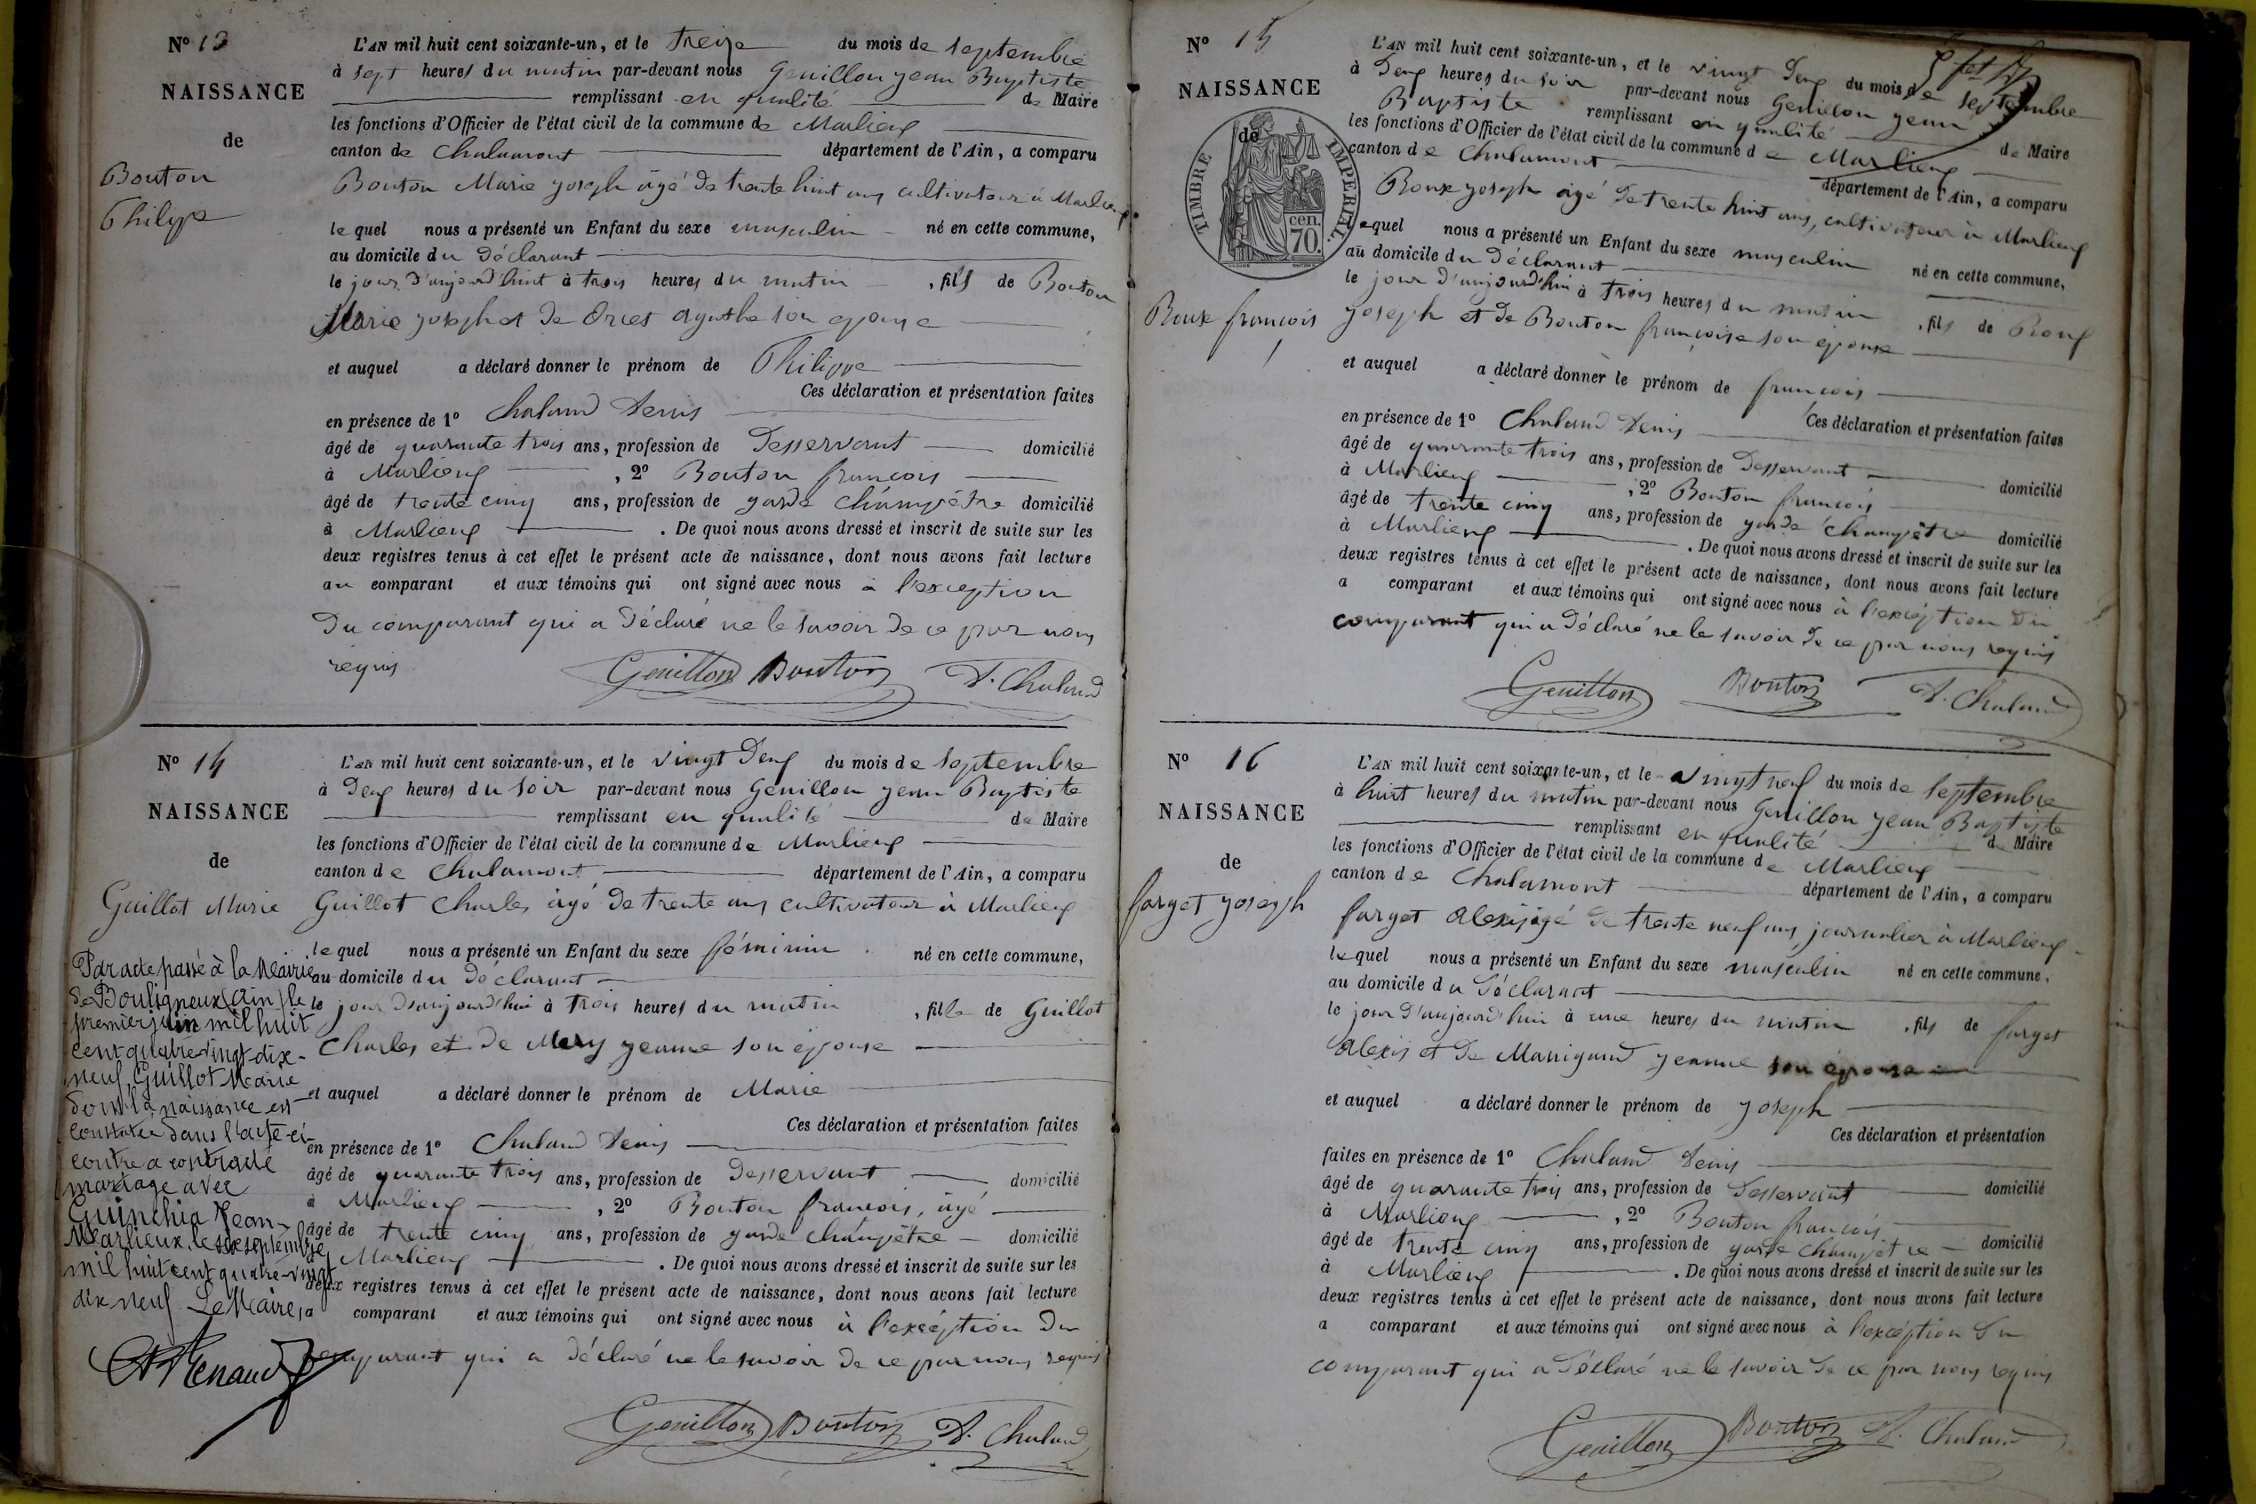 N° 13
NAISSANCE
de
Bouton
Philippe
L'AN mil huit cent soixante-un, et le treize du mois de septembre
à sept heures du matin par-devant nous Genillon Jean Baptiste
remplissant en qualité de Maire
les fonctions d'Officier de l'état civil de la commune de Marlieux
canton de Chalamont département de l'Ain, a comparu
Bouton Marie Joseph âgé de trente huit ans cultivateur à Marlieux
lequel nous a présenté un Enfant du sexe masculin né en cette commune,
au domicile du déclarant
le jour d'aujourd'huit à trois heures du matin, fils de Bouton
Marie Joseph et de Agathe son épouse
et auquel a déclaré donner le prénom de Philippe
Ces déclaration et présentation faites
en présence de 1° Chaland Denis
âgé de quarante trois ans, profession de Desservant domicilié
à Marlieux, 2° Bouton françois
âgé de trente cinq ans, profession de garde champêtre domicilié
à Marlieux. De quoi nous avons dressé et inscrit de suite sur les
deux registres tenus à cet effet le présent acte de naissance, dont nous avons fait lecture
au comparant et aux témoins qui ont signé avec nous à l'exception
du comparant qui a déclaré ne le savoir de ce par nous
requis
Genillon Bouton D. Chaland
N° 14
NAISSANCE
de
Guillot Marie
Par acte passé à la Mairie
de Bouligneux (Ain) le
premier juin mil huit
cent quatre-vingt-dix-
neuf, Guillot Marie
dont la naissance est
constatée dans l'acte ci-
contre a contracté
mariage avec
Guinchia Jean
Marlieux, le septembre
mil huit cent quatre-vingt
dix neuf Le Maire,
Renaud
L'AN mil huit cent soixante-un, et le vingt deux du mois de septembre
à deux heures du soir par-devant nous Genillon Jean Baptiste
remplissant en qualité de Maire
les fonctions d'Officier de l'état civil de la commune de Marlieux
canton de Chalamont département de l'Ain, a comparu
Guillot Charles âgé de trente ans cultivateur à Marlieux
lequel nous a présenté un Enfant du sexe féminin né en cette commune,
au domicile du déclarant
le jour d'aujourd'hui à trois heures du matin, fille de Guillot
Charles et de Mery Jeanne son épouse
et auquel a déclaré donner le prénom de Marie
Ces déclaration et présentation faites
en présence de 1° Chaland Denis
âgé de quarante trois ans, profession de Desservant domicilié
à Marlieux, 2° Bouton françois, âgé
âgé de trente cinq ans, profession de garde champêtre domicilié
à Marlieux. De quoi nous avons dressé et inscrit de suite sur les
deux registres tenus à cet effet le présent acte de naissance, dont nous avons fait lecture
a comparant et aux témoins qui ont signé avec nous à l'exception du
comparant qui a déclaré ne le savoir de ce par nous requis
Genillon Bouton D. Chaland
N° 15
NAISSANCE
de
TIMBRE IMPERIAL.
70. cen.
Roux françois
L'AN mil huit cent soixante-un, et le vingt deux du mois de septembre
à deux heures du soir par-devant nous Genillon Jean
Baptiste remplissant en qualité de Maire
les fonctions d'Officier de l'état civil de la commune de Marlieux
canton de Chalamont département de l'Ain, a comparu
Roux Joseph âgé de trente huit ans, cultivateur à Marlieux
lequel nous a présenté un Enfant du sexe masculin né en cette commune,
au domicile du déclarant
le jour d'aujourd'hui à trois heures du matin, fils de Roux
Joseph et de Bouton françoise son épouse
et auquel a déclaré donner le prénom de françois
Ces déclaration et présentation faites
en présence de 1° Chaland Denis
âgé de quarante trois ans, profession de Desservant domicilié
à Marlieux, 2° Bouton françois
âgé de trente cinq ans, profession de garde champêtre domicilié
à Marlieux. De quoi nous avons dressé et inscrit de suite sur les
deux registres tenus à cet effet le présent acte de naissance, dont nous avons fait lecture
a comparant et aux témoins qui ont signé avec nous à l'exception du
comparant qui a déclaré ne le savoir de ce par nous requis
Genillon Bouton D. Chaland
N° 16
NAISSANCE
de
farget Joseph
L'AN mil huit cent soixante-un, et le vingt neuf du mois de septembre
à huit heures du matin par-devant nous Genillon Jean Baptiste
remplissant en qualité de Maire
les fonctions d'Officier de l'état civil de la commune de Marlieux
canton de Chalamont département de l'Ain, a comparu
farget Alexis âgé de trente neuf ans, journalier à Marlieux
lequel nous a présenté un Enfant du sexe masculin né en cette commune,
au domicile du déclarant
le jour d'aujourd'hui à une heures du matin, fils de farget
Alexis et de Manigand Jeanne son épouse
et auquel a déclaré donner le prénom de Joseph
Ces déclaration et présentation
faites en présence de 1° Chaland Denis
âgé de quarante trois ans, profession de Desservant domicilié
à Marlieux, 2° Bouton françois
âgé de trente cinq ans, profession de garde champêtre domicilié
à Marlieux. De quoi nous avons dressé et inscrit de suite sur les
deux registres tenus à cet effet le présent acte de naissance, dont nous avons fait lecture
a comparant et aux témoins qui ont signé avec nous à l'exception du
comparant qui a déclaré ne le savoir de ce par nous requis
Genillon Bouton D. Chaland